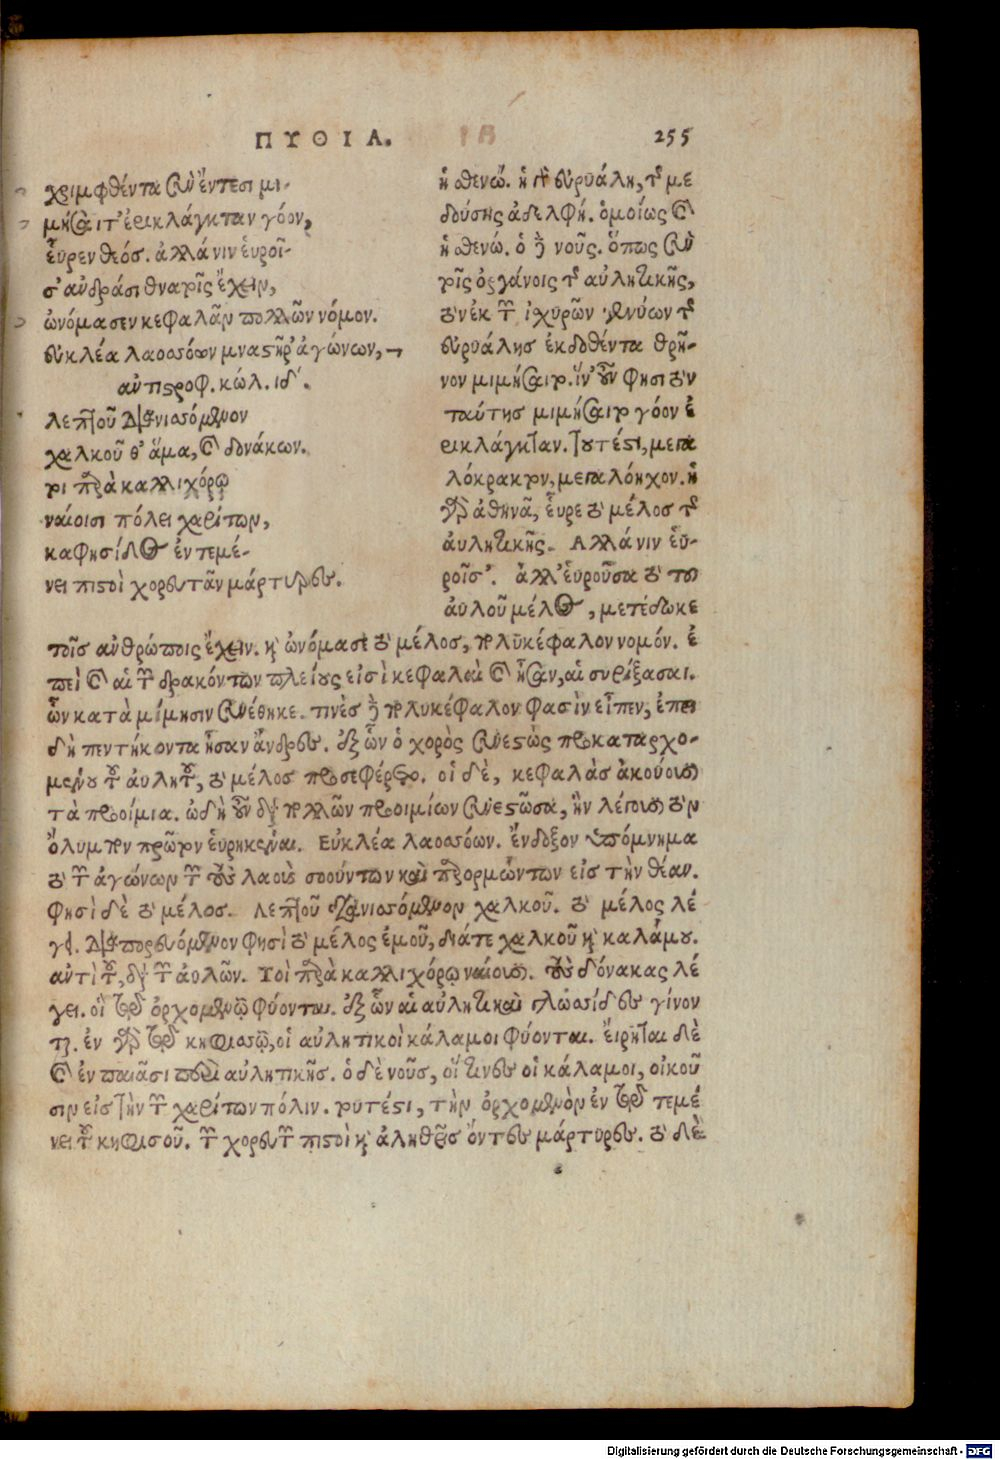 ΠΥΘΙΑ. 255
χριμφθέντα σὺν ἔντεσι μι-
μήσαιτ' ἐρικλάγκταν γόον,
εὗρεν θεός. ἀλλά νιν εὑροῖ-
σ' ἀνδράσι θνατοῖς ἔχειν,
ὠνόμασεν κεφαλᾶν πολλῶν νόμον.
εὐκλέα λαοσσόων μναστῆρ' ἀγώνων,
ἀντιστροφ. κώλ. ιδ'.
λεπτοῦ διανισσόμενον
χαλκοῦ θ' ἅμα, καὶ δονάκων.
τοὶ παρὰ καλλιχόρῳ
ναίοισι πόλει χαρίτων,
καφησίδος ἐν τεμέ-
νει πιστοὶ χορευτᾶν μάρτυρες.
ἡ σθενώ. ἡ τῆς εὐρυάλη, τῆς με
δούσης ἀδελφή. ὁμοίως καὶ
ἡ σθενώ. ὁ δὲ νοῦς. ὅπως σὺν
τοῖς ὀργάνοις τῆς αὐλητικῆς,
τὸν ἐκ τῶν ἰσχυρῶν γενύων τῆς
εὐρυάλης ἐκδοθέντα θρῆ-
νον μιμήσαιτο. ἵν' οὖν φησι τὸν
ταύτης μιμήσαιτο γόον ἐ
ρικλάγκταν. τουτέστι, μεγα
λόκρακτον, μεγαλόηχον. ἡ
γὰρ ἀθηνᾶ, εὗρε τὸ μέλος τῆς
αὐλητικῆς. Αλλά νιν εὑ-
ροῖσ'. ἀλλ' εὑροῦσα τὸ του
αὐλοῦ μέλος, μετέδωκε
τοῖς ἀνθρώποις ἔχειν. καὶ ὠνόμασε τὸ μέλος, πολυκέφαλον νομόν. ἐ
πεὶ καὶ αἱ τῶν δρακόντων πλείους εἰσὶ κεφαλαὶ καὶ ἦσαν, αἱ συρίξασαι.
ὧν κατὰ μίμησιν συνέθηκε. τινὲς δὲ πολυκέφαλον φασὶν εἶπεν, ἐπει
δὴ πεντήκοντα ἦσαν ἄνδρες. ἐξ ὧν ὁ χορὸς συνεστὼς προκαταρχο-
μένου τοῦ αὐλητοῦ, τὸ μέλος προσεφέρετο. οἱ δὲ, κεφαλὰς ἀκούουσι
τὰ προοίμια. ὠδὴ οὖν διὰ πολλῶν προοιμίων συνεστῶσα, ἣν λέγουσι τὸν
ὄλυμπον πρῶτον εὑρηκέναι. Εὐκλέα λαοσσόων. ἔνδοξον ὑπόμνημα
τὸ τῶν ἀγώνων τῶν τοὺς λαοὺς σοούντων καὶ παρορμώντων εἰς τὴν θέαν.
φησὶ δὲ τὸ μέλος. Λεπτοῦ διανισσόμενον χαλκοῦ. τὸ μέλος λέ
γει. διαπορευόμενον φησὶ τὸ μέλος ἐμοῦ, διάτε χαλκοῦ καὶ καλάμου.
ἀντὶ τοῦ, διὰ τῶν αὐλῶν. Τοὶ παρὰ καλλιχόρῳ ναίουσι. τοὺς δόνακας λέ
γει. οἳ ἐν τῷ ὀρχομενῷ φύονται. ἐξ ὧν αἱ αὐλητικαὶ γλωσσίδες γίνον
ται. ἐν γὰρ τῷ κηφισσῷ, οἱ αὐλητικοὶ κάλαμοι φύονται. εἴρηται δὲ
καὶ ἐν πᾶσι περὶ αὐλητικῆς. ὁ δὲ νοῦς, οἵτινες οἱ κάλαμοι, οἰκοῦ
σιν εἰς τὴν τῶν χαρίτων πόλιν. τουτέστι, τὴν ὀρχομενὸν ἐν τῷ τεμέ
νει τοῦ κηφισοῦ. τῶν χορευτῶν πιστοὶ καὶ ἀληθεῖς ὄντες μάρτυρες. τὸ δὲ
Digitalisierung gefördert durch die Deutsche Forschungsgemeinschaft - DFG